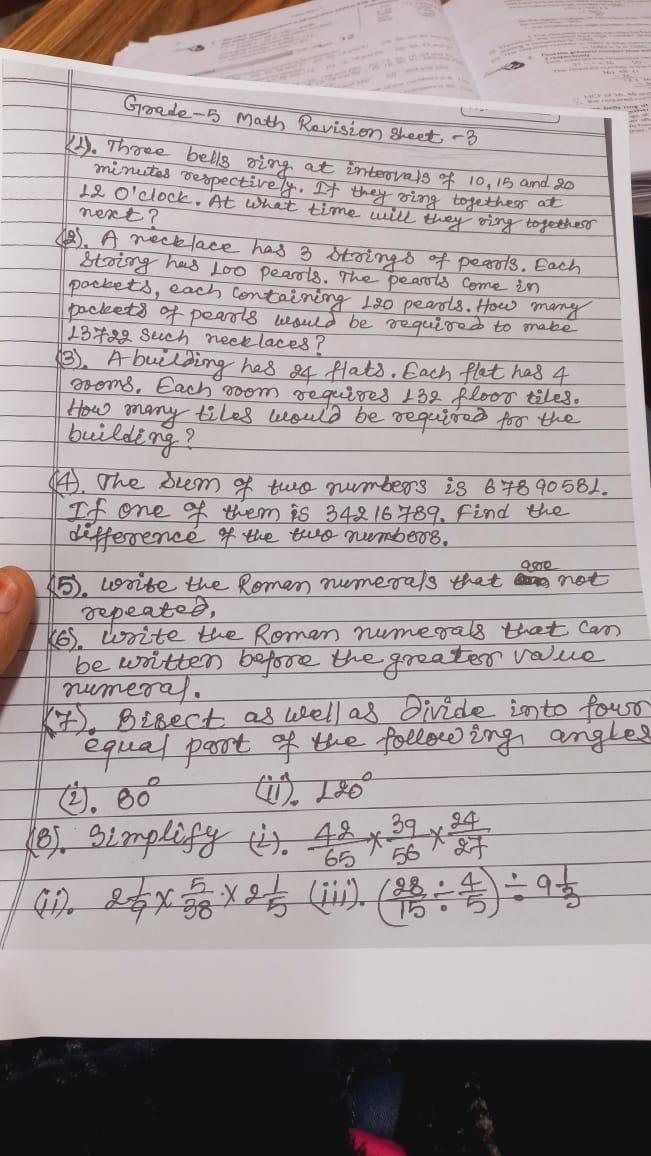 Grade-5 Math Revision Sheet-3
(1). Three bells ring at intervals of 10, 15 and 20
minutes respectively. If they ring together at
12 O'clock. At what time will they ring together
next?
(2). A necklace has 3 strings of pearls. Each
string has 100 pearls. The pearls come in
packets, each containing 120 pearls. How many
packets of pearls would be required to make
13722 such necklaces?
(3). A building has 24 flats. Each flat has 4
rooms. Each room requires 132 floor tiles.
How many tiles would be required for the
building?
(4). The sum of two numbers is 67890581.
If one of them is 34216789. Find the
difference of the two numbers.
(5). Write the Roman numerals that are not
repeated.
(6). Write the Roman numerals that can
be written before the greater value
numeral.
(7). Bisect as well as Divide into four
equal part of the following angles
(i). 80° (ii). 120°
(8). Simplify (i). 42/65 × 39/56 × 24/27
(ii). 2 1/9 × 5/38 × 2 1/5 (iii). (28/15 ÷ 4/5) ÷ 9 1/3